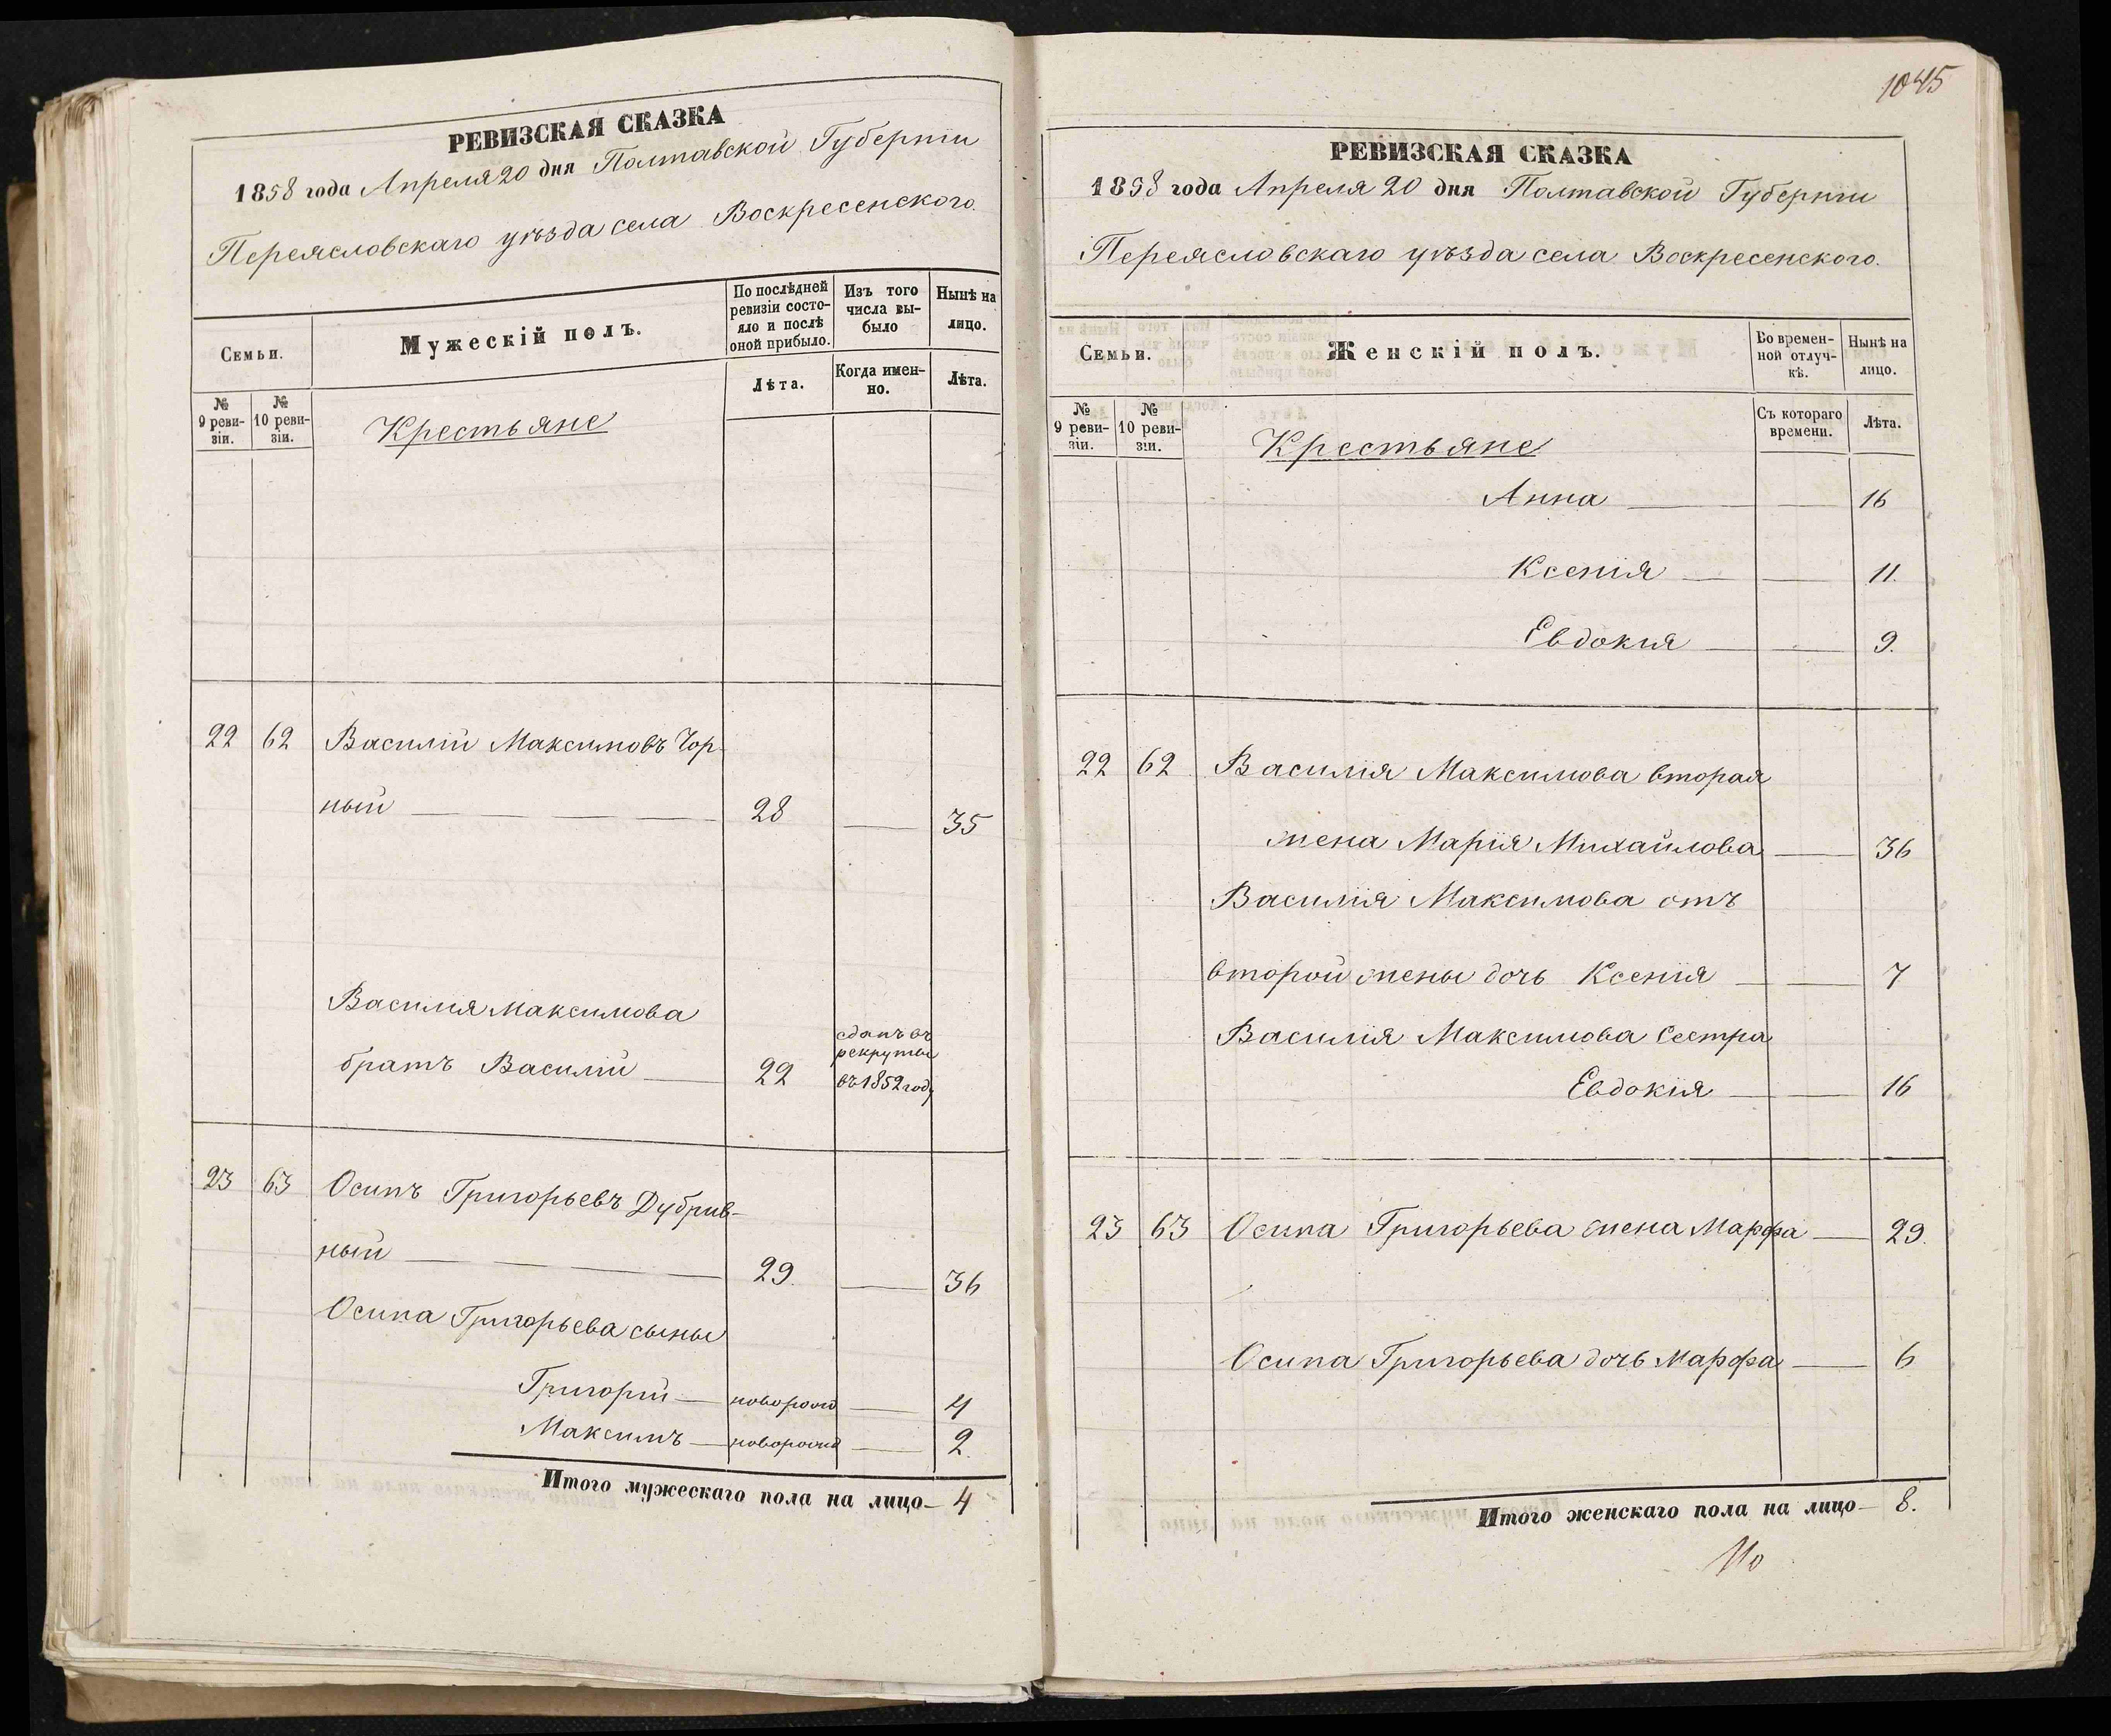 РЕВИЗСКАЯ СКАЗКА
1858 года Апреля 20 дня Полтавской Губерніи
Переясловскаго уѣзда села Воскресенского.
Семьи.
Мужескій полъ.
По послѣдней ревизіи состояло и послѣ оной прибыло.
Изъ того числа выбыло
Нынѣ на лицо.
Лѣта.
Когда именно.
Лѣта.
№ 9 ревизіи.
№ 10 ревизіи.
Крестьяне
22 62 Василій Максимовъ Чор-
ный 28 35
Василия Максимова
братъ Василій 22 сданъ въ рекруты въ 1852 году
23 63 Осипъ Григорьевъ Дубрив-
ный 29. 36
Осипа Григорьева сыны
Григорій новорожд 4
Максимъ новорожд 2.
Итого мужескаго пола на лицо 4
1045
РЕВИЗСКАЯ СКАЗКА
1858 года Апреля 20 дня Полтавской Губерніи
Переясловскаго уѣзда села Воскресенского.
Семьи.
Женскій полъ.
Во временной отлучкѣ.
Нынѣ на лицо.
Съ котораго времени.
Лѣта.
№ 9 ревизіи.
№ 10 ревизіи.
Крестьяне
Анна 16
Ксенія 11.
Евдокия 9.
22 62 Василія Максимова вторая
жена Марія Михайлова 36
Василія Максимова отъ
второй жены дочь Ксенія 7
Василія Максимова Сестра
Евдокія 16
23 63 Осипа Григорьева жена Марфа 29.
Осипа Григорьева дочь Марфа 6
Итого женскаго пола на лицо 8.